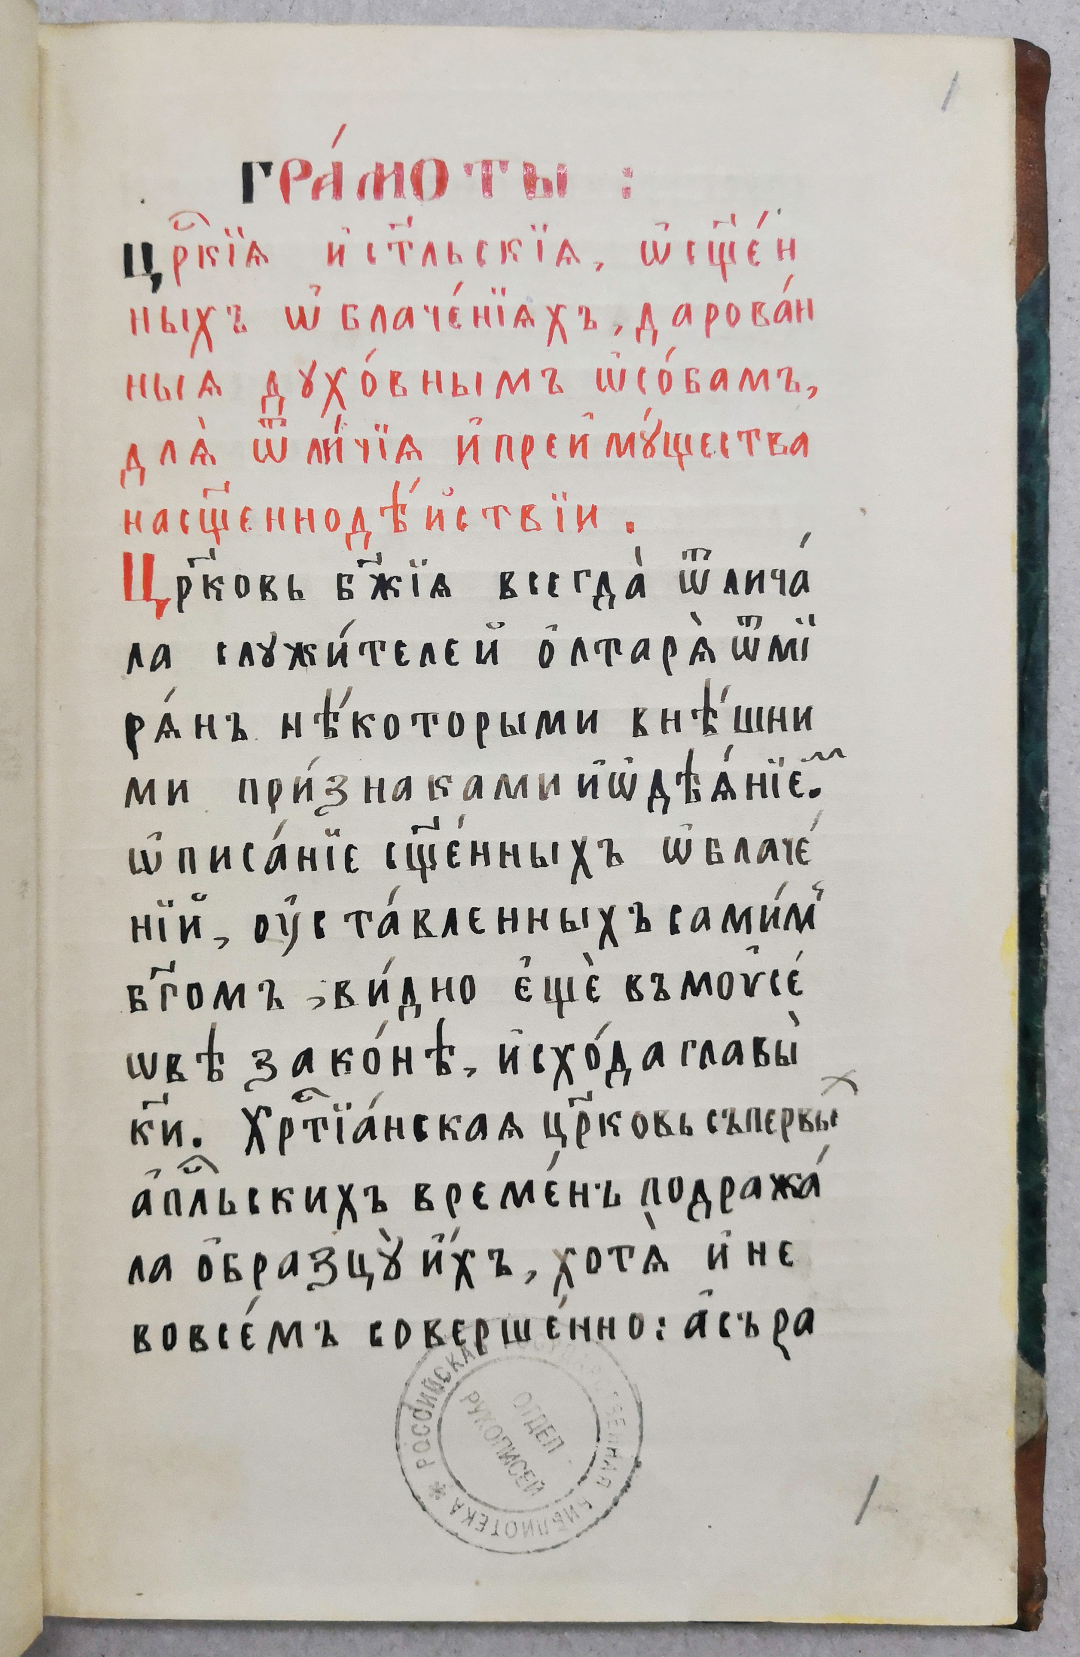 1
Гра́моты :
Цр҃кїѧ и҆ ст҃льскїѧ, ѡ҆ сщ҃е́н
ныхъ ѡ҆блаче́нїѧхъ, дарова́н
ныѧ дꙋхо́внымъ ѡ҆со́бамъ,
длѧ̀ ѿли́чїѧ и҆ преи҆мꙋ́щества
на сщ҃еннодѣ́йствїи.
Цр҃ковь бж҃їѧ всегда̀ ѿлича́
ла слꙋжи́телей о҆лтарѧ̀ ѿ мї
рѧ́нъ нѣ́которыми внѣ́шни
ми при́знаками и҆ ѡ҆дѣѧ́нїеⷨ.
ѡ҆писа́нїе сщ҃е́нныхъ ѡ҆блаче́
нїй, оу҆ста́вленныхъ сами́мъ
бг҃омъ, ви́дно є҆щѐ въ моѵсе́
ѡвѣ зако́нѣ, и҆схо́да главы̀
к҃и. Хрⷭ҇тїа́нскаѧ цр҃ковь съ первыⷯ
а҆пⷭ҇льскихъ време́нъ подража́
ла о҆бразцꙋ̀ и҆́хъ, хотѧ̀ и҆ не
вовсе́мъ соверше́нно: а҆ съ ра
РОССИЙСКАЯ ГОСУДАРСТВЕННАЯ БИБЛИОТЕКА *
ОТДЕЛ
РУКОПИСЕЙ
1